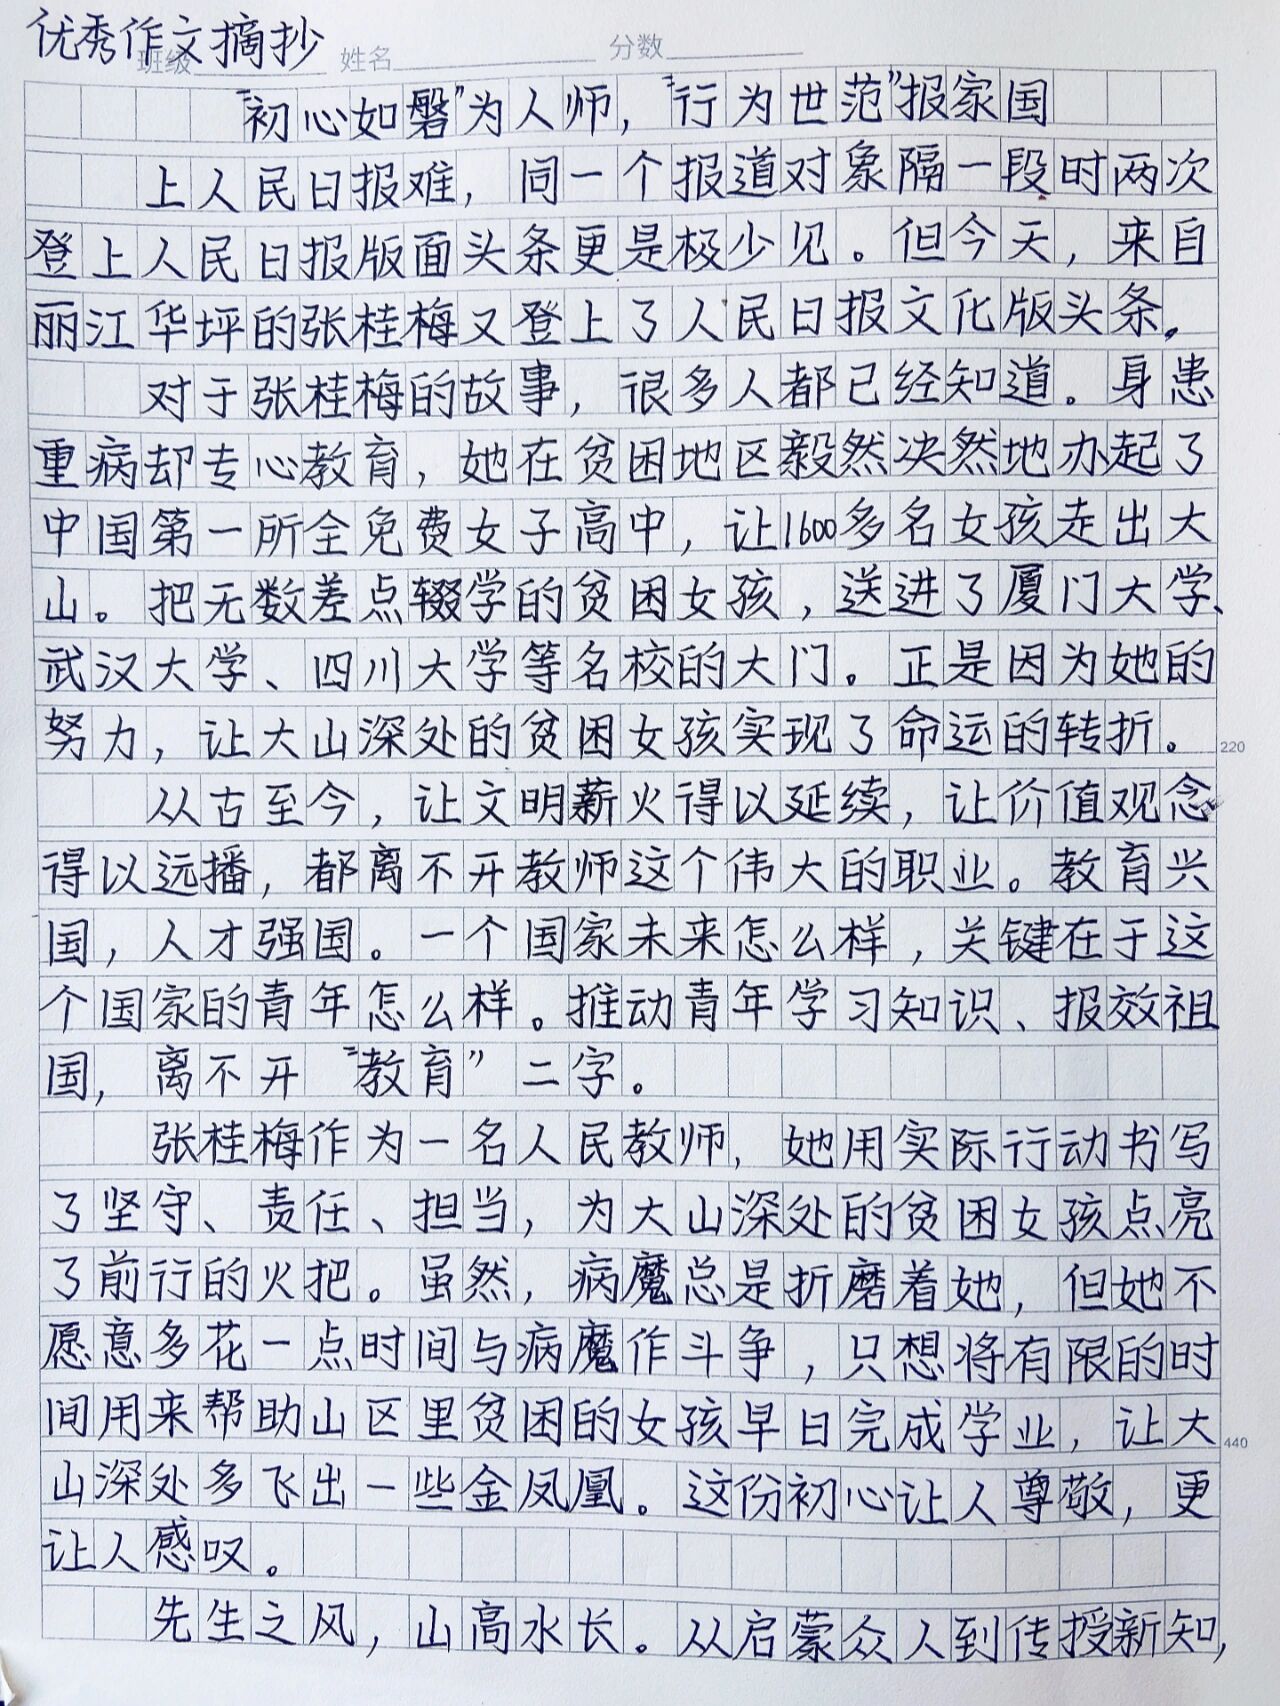 优秀作文摘抄
班级 姓名 分数
“初心如磐”为人师，“行为世范”报家国
上人民日报难，同一个报道对象隔一段时两次
登上人民日报版面头条更是极少见。但今天，来自
丽江华坪的张桂梅又登上了人民日报文化版头条。
对于张桂梅的故事，很多人都已经知道。身患
重病却专心教育，她在贫困地区毅然决然地办起了
中国第一所全免费女子高中，让1600多名女孩走出大
山。把无数差点辍学的贫困女孩，送进了厦门大学、
武汉大学、四川大学等名校的大门。正是因为她的
努力，让大山深处的贫困女孩实现了命运的转折。
220
从古至今，让文明薪火得以延续，让价值观念
得以远播，都离不开教师这个伟大的职业。教育兴
国，人才强国。一个国家未来怎么样，关键在于这
个国家的青年怎么样。推动青年学习知识、报效祖
国，离不开“教育”二字。
张桂梅作为一名人民教师，她用实际行动书写
了坚守、责任、担当，为大山深处的贫困女孩点亮
了前行的火把。虽然，病魔总是折磨着她，但她不
愿意多花一点时间与病魔作斗争，只想将有限的时
间用来帮助山区里贫困的女孩早日完成学业，让大
440
山深处多飞出一些金凤凰。这份初心让人尊敬，更
让人感叹。
先生之风，山高水长。从启蒙众人到传授新知，